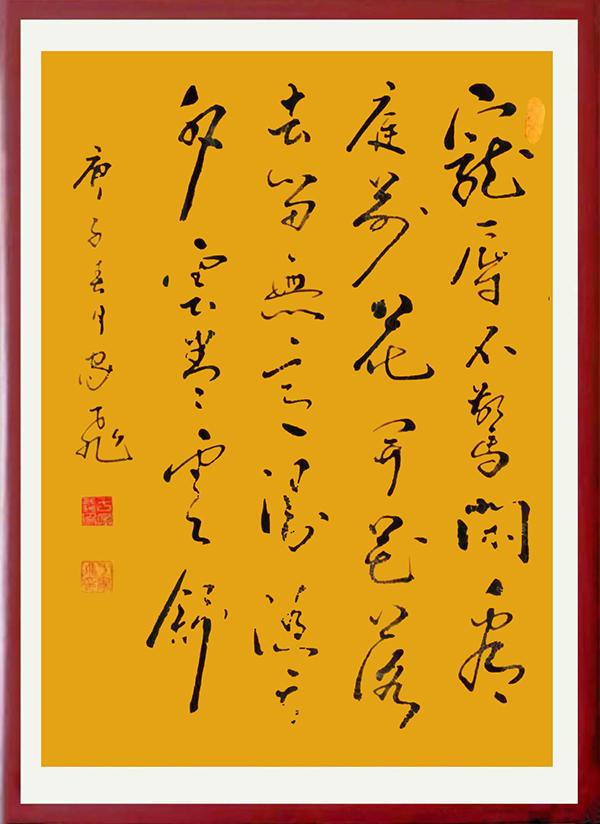 寵辱不驚閑看
庭前花开花落
去留無意漫隨天
外雲卷雲舒
庚子春月家飛